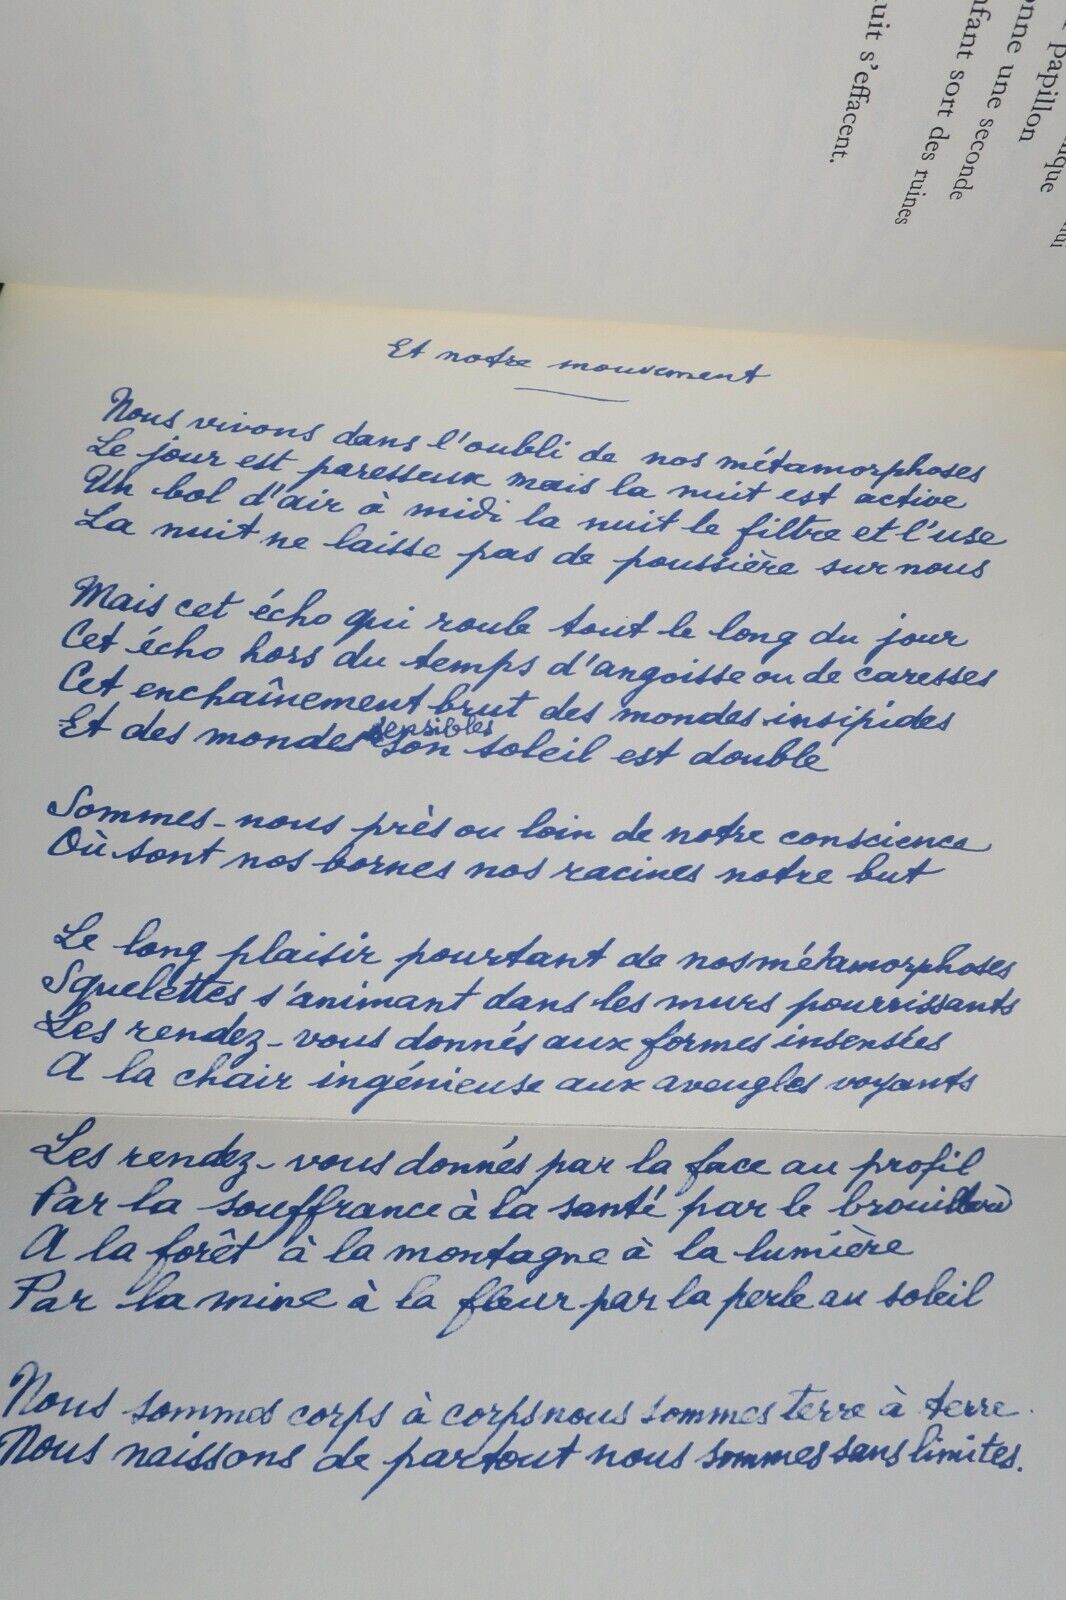 Papillon
une seconde
sort des ruines
s'effacent.
Et notre mouvement
Nous vivons dans l'oubli de nos métamorphoses
Le jour est paresseux mais la nuit est active
Un bol d'air à midi la nuit le filtre et l'use
La nuit ne laisse pas de poussière sur nous
Mais cet écho qui roule tout le long du jour
Cet écho hors du temps d'angoisse ou de caresses
Cet enchaînement brut des mondes insipides
Et des mondes sensibles son soleil est double
Sommes-nous près ou loin de notre conscience
Où sont nos bornes nos racines notre but
Le long plaisir pourtant de nos métamorphoses
Squelettes s'animant dans les murs pourrissants
Les rendez-vous donnés aux formes insensées
A la chair ingénieuse aux aveugles voyants
Les rendez-vous donnés par la face au profil
Par la souffrance à la santé par le brouillard
A la forêt à la montagne à la lumière
Par la mine à la fleur par la perle au soleil
Nous sommes corps à corps nous sommes terre à terre
Nous naissons de partout nous sommes sans limites.